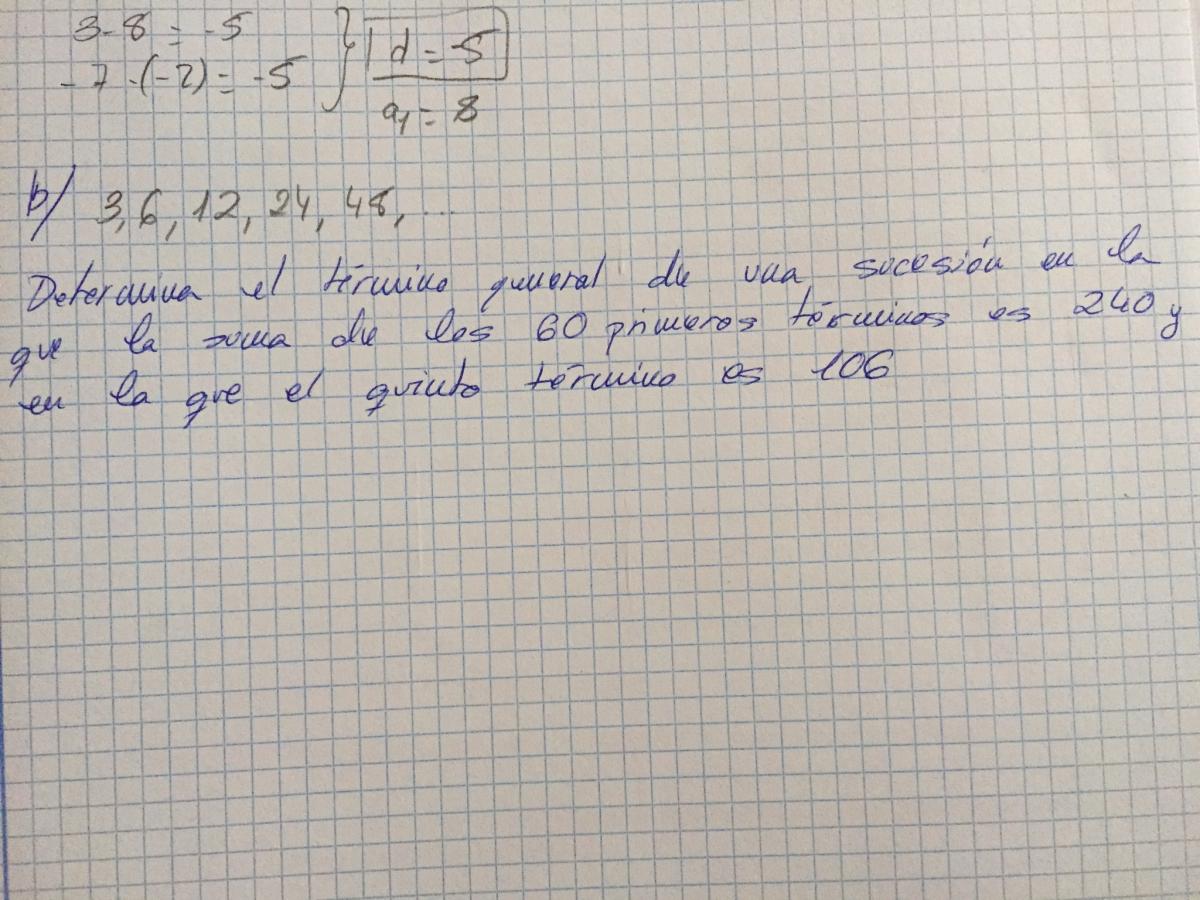 3-8 = -5
-7 -(-2) = -5 } d = -5
a₁ = 8
b/ 3, 6, 12, 24, 48, ...
Determina el término general de una sucesión en la
que la suma de los 60 primeros términos es 240 y
en la que el quinto término es 106